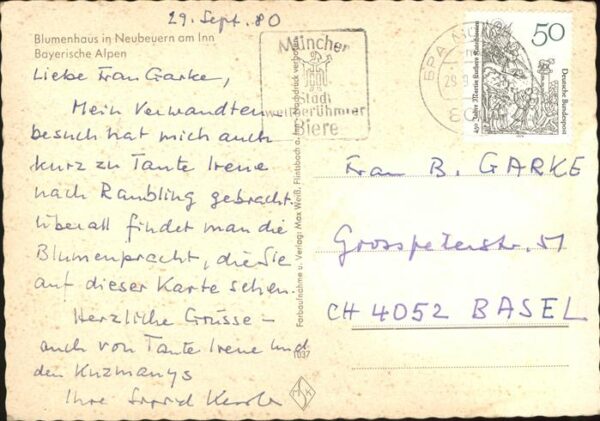 29. Sept. 80
Blumenhaus in Neubeuern am Inn
Bayerische Alpen
Liebe Frau Garke,
Mein Verwandten
besuch hat mich auch
kurz zu Tante Irene
nach Raubling gebracht.
Überall findet man die
Blumenpracht, die Sie
auf dieser Karte sehen.
Herzliche Grüsse –
auch von Tante Irene und
den Kuzmanys
Ihre
Farbaufnahme u. Verlag: Max Weiß, Flintsbach a. Inn
Nachdruck verboten
1037
München
Stadt
weltberühmter
Biere
BPA MÜ
50
Deutsche Bundespost
Frau B. GARKE
Grosspeterstr. 51
CH 4052 BASEL